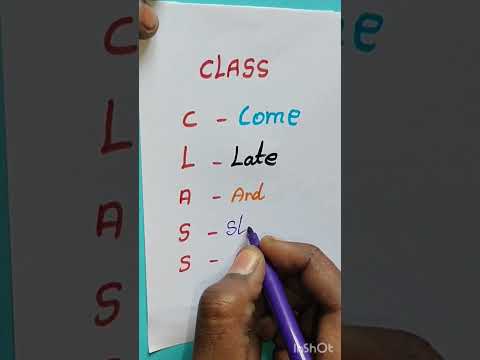 CLASS
C - Come
L - Late
A - And
S - Sl
S -
InShOt